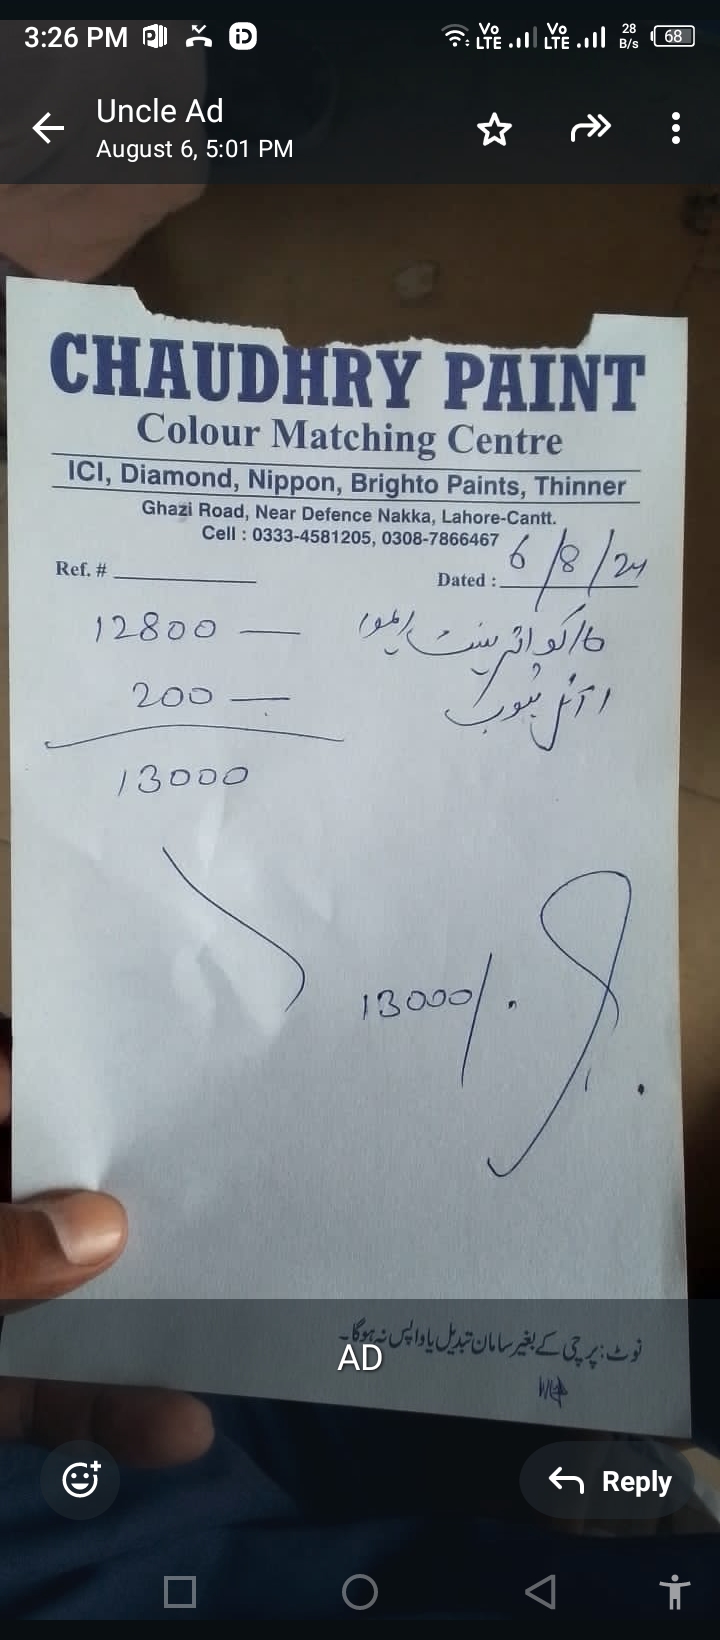 3:26 PM
Vo LTE Vo LTE 28 B/s 68
Uncle Ad
August 6, 5:01 PM
CHAUDHRY PAINT
Colour Matching Centre
ICI, Diamond, Nippon, Brighto Paints, Thinner
Ghazi Road, Near Defence Nakka, Lahore-Cantt.
Cell : 0333-4581205, 0308-7866467
Ref. # Dated : 6/8/24
12800 —
200 — 1 آئل ٹیوب
13000
13000/.
نوٹ: پرچی کے بغیر سامان تبدیل یا واپس نہ ہوگا۔
AD
Reply